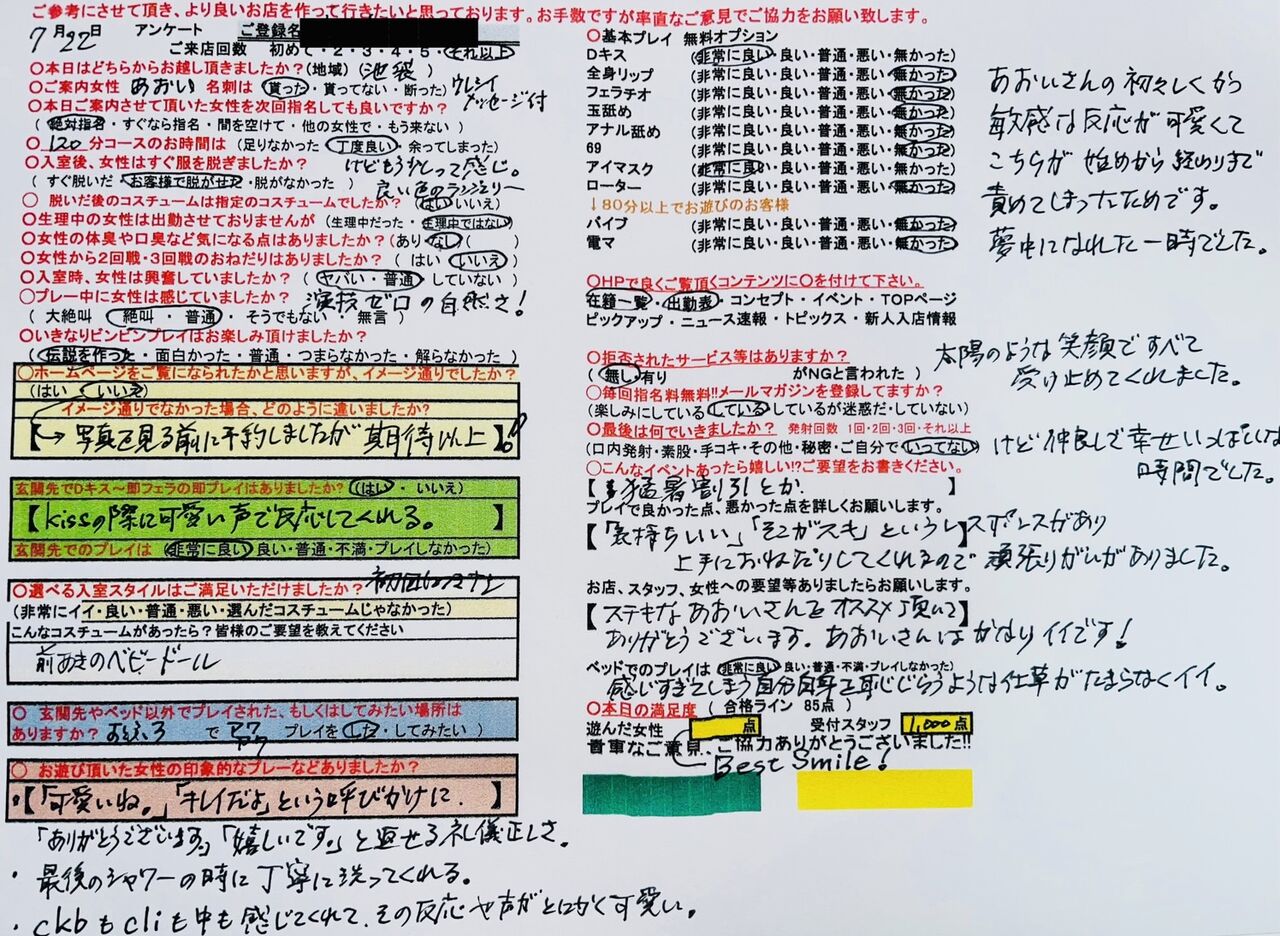 ご参考にさせて頂き、より良いお店を作って行きたいと思っております。お手数ですが率直なご意見でご協力をお願い致します。
7月22日 アンケート ご登録名
ご来店回数 初めて・2・3・4・5・それ以上
〇本日はどちらからお越し頂きましたか?(地域) (池袋)
〇ご案内女性 あおい 名刺は (貰った・貰ってない・断った) ウレシイ メッセージ付
〇本日ご案内させて頂いた女性を次回指名しても良いですか?
(絶対指名・すぐなら指名・間を空けて・他の女性で・もう来ない )
〇 120 分コースのお時間は (足りなかった・丁度良い・余ってしまった)
〇入室後、女性はすぐ服を脱ぎましたか? けどもう少しって感じ。
( すぐ脱いだ・お客様で脱がせた・脱がなかった ) 良い色のランジェリー
〇 脱いだ後のコスチュームは指定のコスチュームでしたか? (はい・いいえ)
〇生理中の女性は出勤させておりませんが (生理中だった・生理中ではない)
〇女性の体臭や口臭など気になる点はありましたか? (あり・なし) ( )
〇女性から2回戦・3回戦のおねだりはありましたか? ( はい・いいえ )
〇入室時、女性は興奮していましたか? ( ヤバい・普通・していない )
〇プレー中に女性は感じていましたか? 演技ゼロの自然さ!
( 大絶叫・絶叫・普通・そうでもない・無言 )
〇いきなりビンビンプレイはお楽しみ頂けましたか?
(伝説を作った・面白かった・普通・つまらなかった・解らなかった )
〇ホームページをご覧になられたかと思いますが、イメージ通りでしたか?
(はい・いいえ)
イメージ通りでなかった場合、どのように違いましたか?
【→ 写真を見る前に予約しましたが期待以上】!
玄関先でDキス〜即フェラの即プレイはありましたか? (はい ・ いいえ)
【kissの際に可愛い声で反応してくれる。
玄関先でのプレイは (非常に良い・良い・普通・不満・プレイしなかった)
〇選べる入室スタイルはご満足いただけましたか?
(非常にイイ・良い・普通・悪い・選んだコスチュームじゃなかった)
こんなコスチュームがあったら?皆様のご要望を教えてください
前あきのベビードール
〇 玄関先やベッド以外でプレイされた、もしくはしてみたい場所は
ありますか? おふろ で アワアワ プレイを (した・してみたい )
〇 お遊び頂いた女性の印象的なプレーなどありましたか?
・【「可愛いね。」「キレイだよ」という呼びかけに. 】
「ありがとうございます。」「嬉しいです。」と返せる礼儀正しさ。
・最後のシャワーの時に丁寧に洗ってくれる。
・ckbもcliも中も感じてくれて、その反応や声がとにかく可愛い。
〇基本プレイ 無料オプション
Dキス (非常に良い・良い・普通・悪い・無かった)
全身リップ (非常に良い・良い・普通・悪い・無かった)
フェラチオ (非常に良い・良い・普通・悪い・無かった)
玉舐め (非常に良い・良い・普通・悪い・無かった)
アナル舐め (非常に良い・良い・普通・悪い・無かった)
69 (非常に良い・良い・普通・悪い・無かった)
アイマスク (非常に良い・良い・普通・悪い・無かった)
ローター (非常に良い・良い・普通・悪い・無かった)
↓80分以上でお遊びのお客様
バイブ (非常に良い・良い・普通・悪い・無かった)
電マ (非常に良い・良い・普通・悪い・無かった)
あおいさんの初々しくかつ
敏感な反応が可愛くて
こちらが始めから終わりまで
責めてしまったためです。
夢中になれた一時でした。
〇HPで良くご覧頂くコンテンツに〇を付けて下さい。
在籍一覧・出勤表・コンセプト・イベント・TOPページ
ピックアップ・ニュース速報・トピックス・新人入店情報
太陽のような笑顔ですべて
受け止めてくれました。
〇拒否されたサービス等はありますか?
( 無し・有り がNGと言われた )
〇毎回指名料無料!!メールマガジンを登録してますか?
(楽しみにしている・している・しているが迷惑だ・していない)
〇最後は何でいきましたか? 発射回数 1回・2回・3回・それ以上
(口内発射・素股・手コキ・その他・秘密・ご自分で・いってない) けど仲良しで幸せいっぱいな
時間でした。
〇こんなイベントあったら嬉しい!?ご要望をお書きください。
【 猛暑割引とか. 】
プレイで良かった点、悪かった点を詳しくお願いします。
【「気持ちいい」「そこがスキ」というレスポンスがあり
上手におねだりしてくれるので頑張りがいがありました。
お店、スタッフ、女性への要望等ありましたらお願いします。
【ステキなあおいさんをオススメ頂いて】
ありがとうございます。あおいさんはかなりイイです!
ベッドでのプレイは (非常に良い・良い・普通・不満・プレイしなかった)
感じすぎてしまう自分自身を恥じらうような仕草がたまらなくイイ。
〇本日の満足度 ( 合格ライン 85点 )
遊んだ女性 点 受付スタッフ 1,000点
貴重なご意見、ご協力ありがとうございました!!
Best Smile!